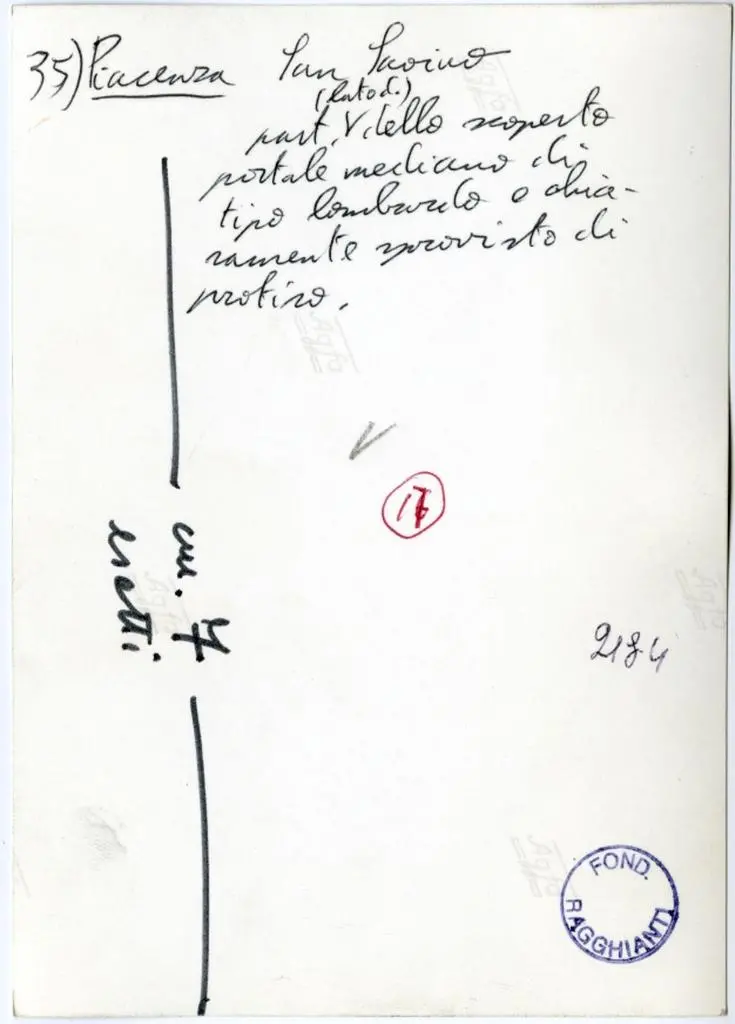 35) Piacenza San Savino
(lato d.)
part. V dello scoperto
portale mediano di
tipo lombardo e chia-
ramente sprovvisto di
protiro.
V
17
cm. 7
esatti
2184
FOND.
RAGGHIANTI